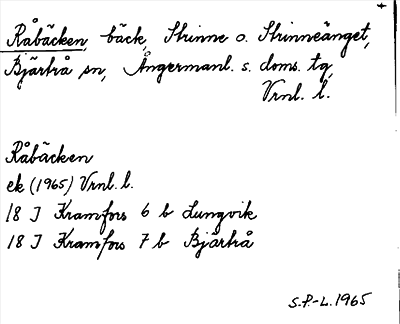 Råbäcken, bäck, Strinne o. Strinneänget,
Bjärtrå sn, Ångermanl. s. doms. tg,
Vrnl. l.
Råbäcken
ek (1965) Vrnl. l.
18 J Kramfors 6 b Lungvik
18 J Kramfors 7 b Bjärtrå
S.P.-L. 1965